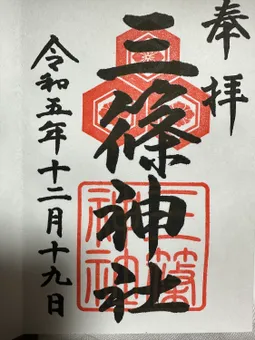 奉拝
三篠神社
三篠神社
令和五年十二月十九日